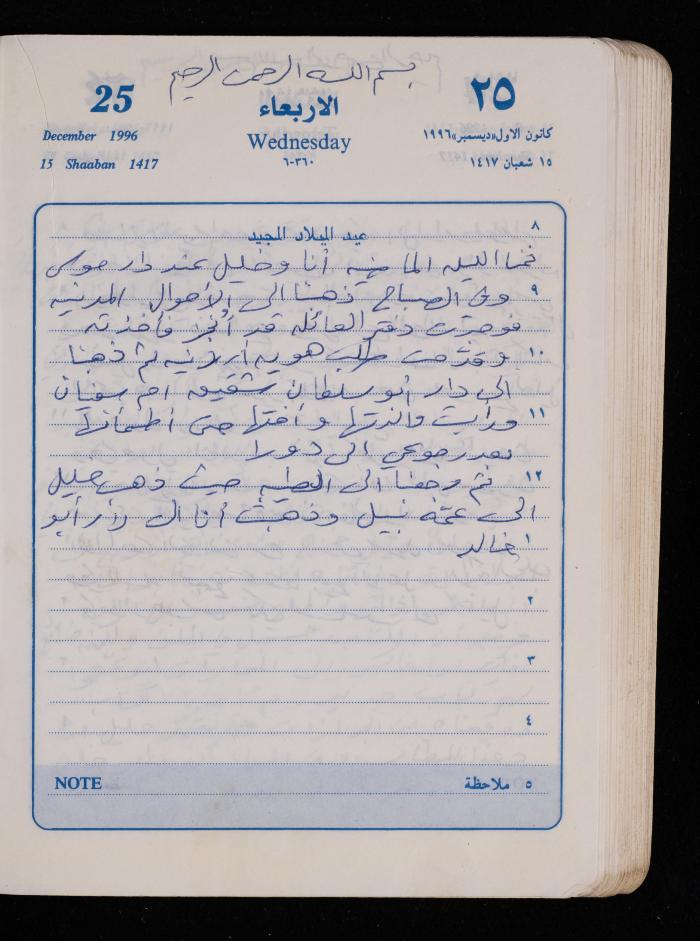 بسم الله الرحمن الرحيم
25 الاربعاء ٢٥
December 1996 Wednesday كانون الاول «ديسمبر» ١٩٩٦
15 Shaaban 1417 ٣٦٠-٦ ١٥ شعبان ١٤١٧
٨ عيد الميلاد المجيد
نمنا الليله الماضيه أنا وخليل عند دار موسى
٩ وفي الصباح ذهبنا الى الأحوال المدنيه
فوجدت دفتر العائله قد أنجز فأخذته
١٠ وقدمت طلب هويه أردنيه ثم ذهبنا
الى دار أبو سلطان شقيقه ام سفيان
١١ ورأيت والدتها وأختها حتى أطمأنها
بعد رجوعي الى دورا
١٢ ثم رجعنا الى الطيبه حيث ذهب خليل
الى عمته نبيل وذهبت أنا الى دار أبو
١ خالد
٢
٣
٤
NOTE ٥ ملاحظة